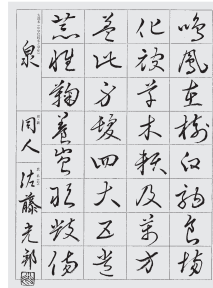 鳴鳳在樹白駒食場
化被草木頼及萬方
蓋此身髮四大五常
恭惟鞠養豈敢毀傷
泉 同人 佐藤光郎